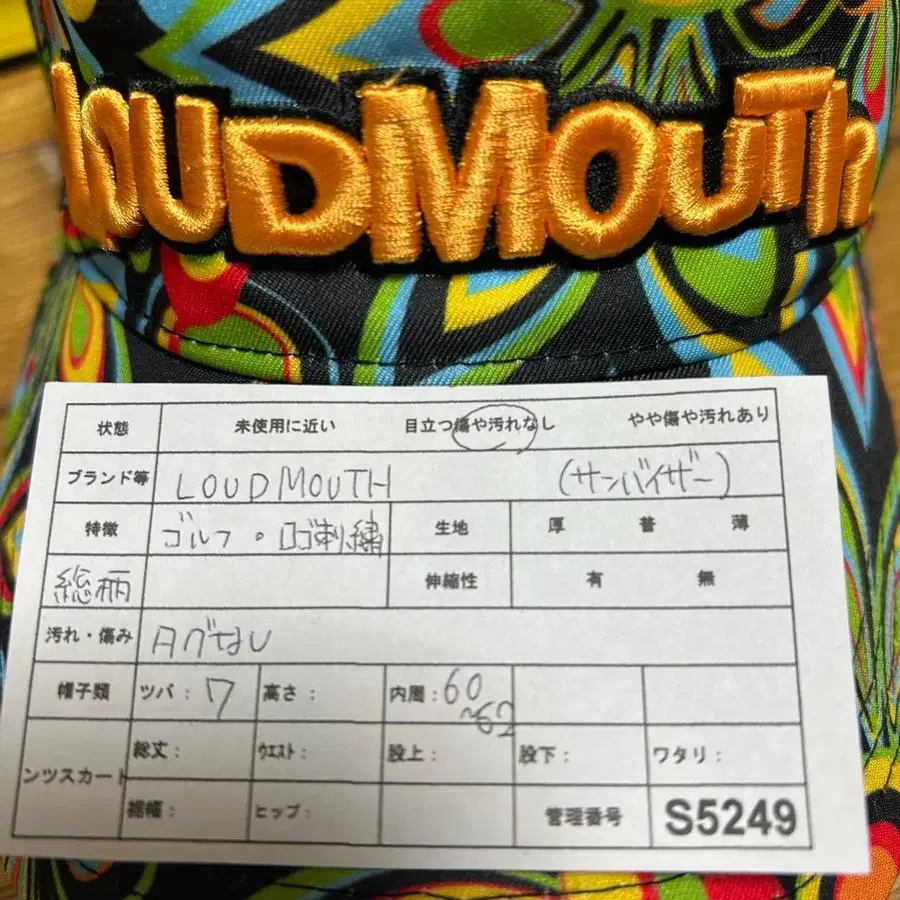 LOUDMOUTH
状態 未使用に近い 目立つ傷や汚れなし やや傷や汚れあり
ブランド等 LOUDMOUTH (サンバイザー)
特徴 ゴルフ・ロゴ刺繍 生地 厚 普 薄
総柄 伸縮性 有 無
汚れ・傷み タグなし
帽子類 ツバ: 7 高さ: 内周: 60
~62
ンツスカート 総丈: ウエスト: 股上: 股下: ワタリ:
裾幅: ヒップ: 管理番号 S5249